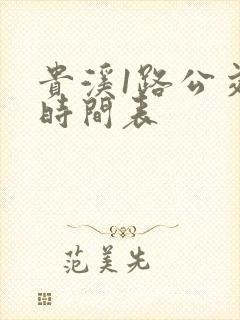 貴溪1路公交
時間表
范美先